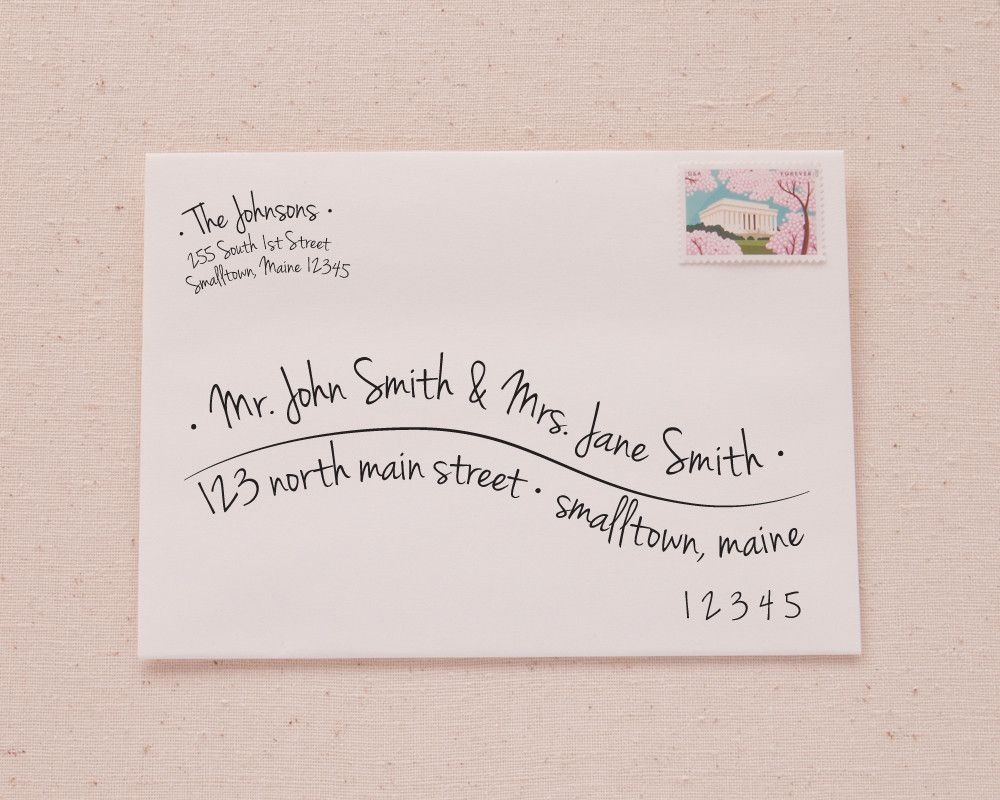 · The Johnsons ·
255 South 1st Street
Smalltown, Maine 12345
USA FOREVER
· Mr. John Smith & Mrs. Jane Smith ·
123 north main street · smalltown, maine
12345